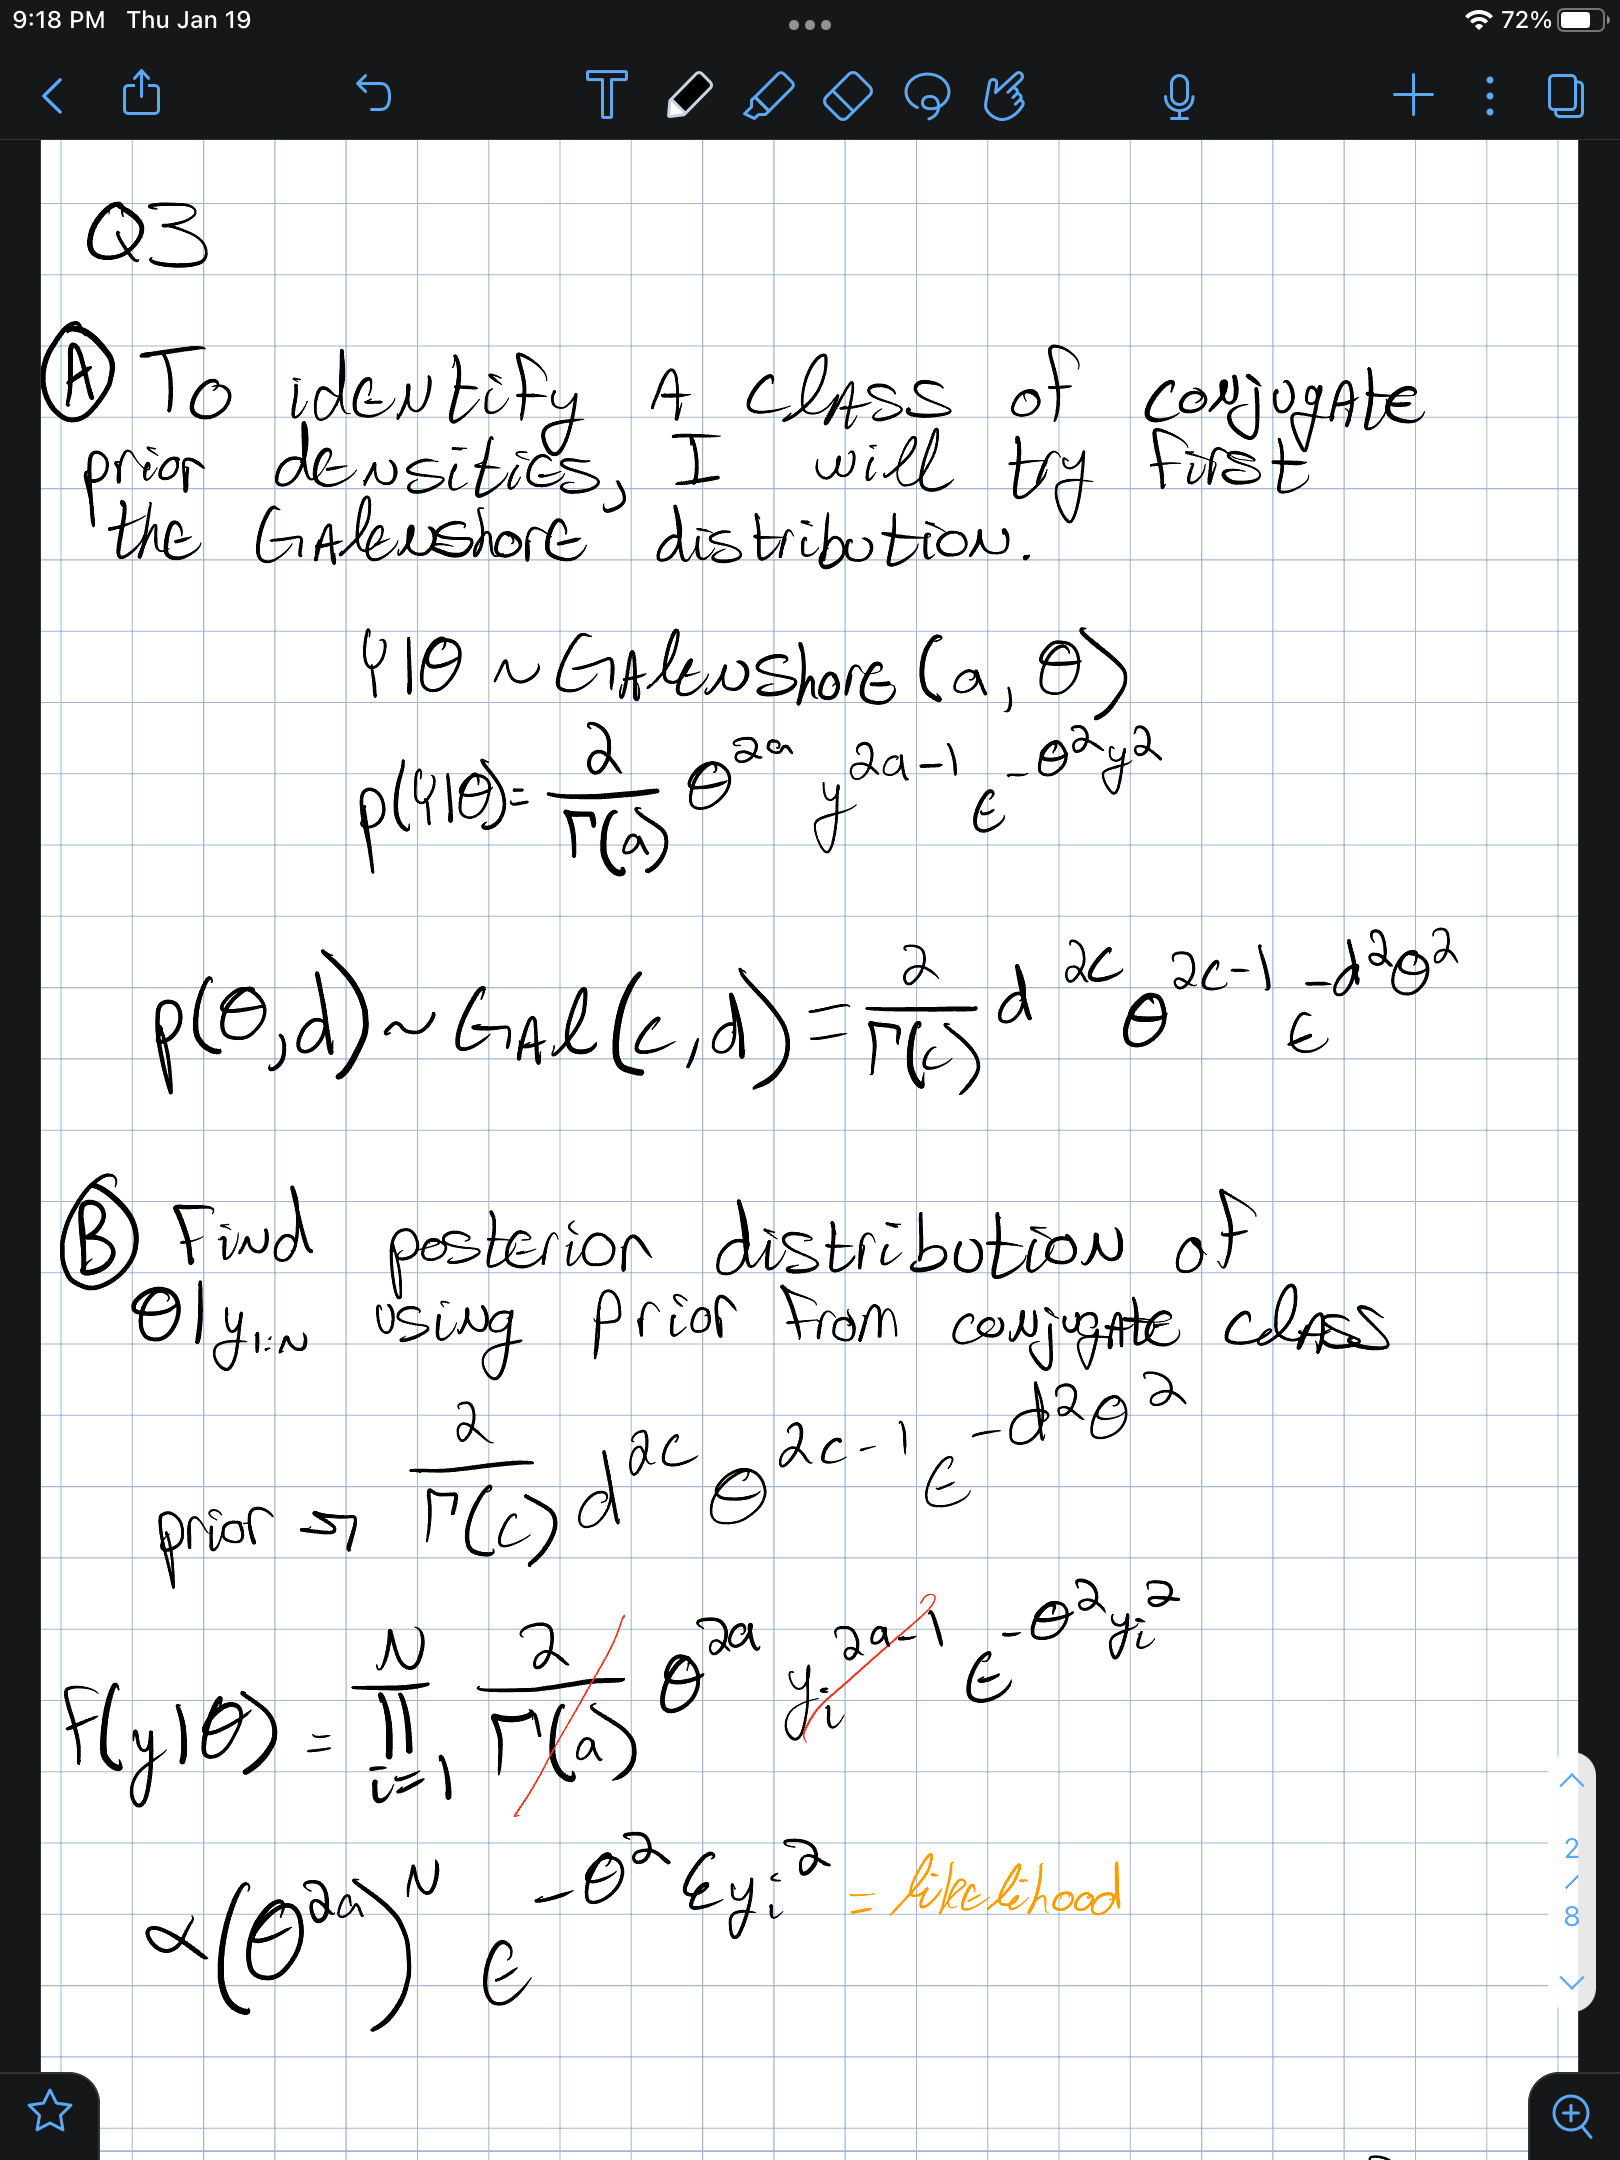 9:18 PM Thu Jan 19
72%
Q3
(A) To identify a class of conjugate
prior densities, I will try first
the Galenshore distribution.
Y|θ ~ Galenshore (a, θ)
p(Y|θ) = 2/Γ(a) θ^{2a} y^{2a-1} e^{-θ²y²}
p(θ,d) ~ Gal(c,d) = 2/Γ(c) d^{2c} θ^{2c-1} e^{-d²θ²}
(B) Find posterior distribution of
θ|y_{1:N} using prior from conjugate class
prior → 2/Γ(c) d^{2c} θ^{2c-1} e^{-d²θ²}
f(y|θ) = ∏_{i=1}^{N} 2/Γ(a) θ^{2a} y_i^{2a-1} e^{-θ²y_i²}
∝ (θ^{2a})^N e^{-θ² Σy_i²} = likelihood
2
/
8